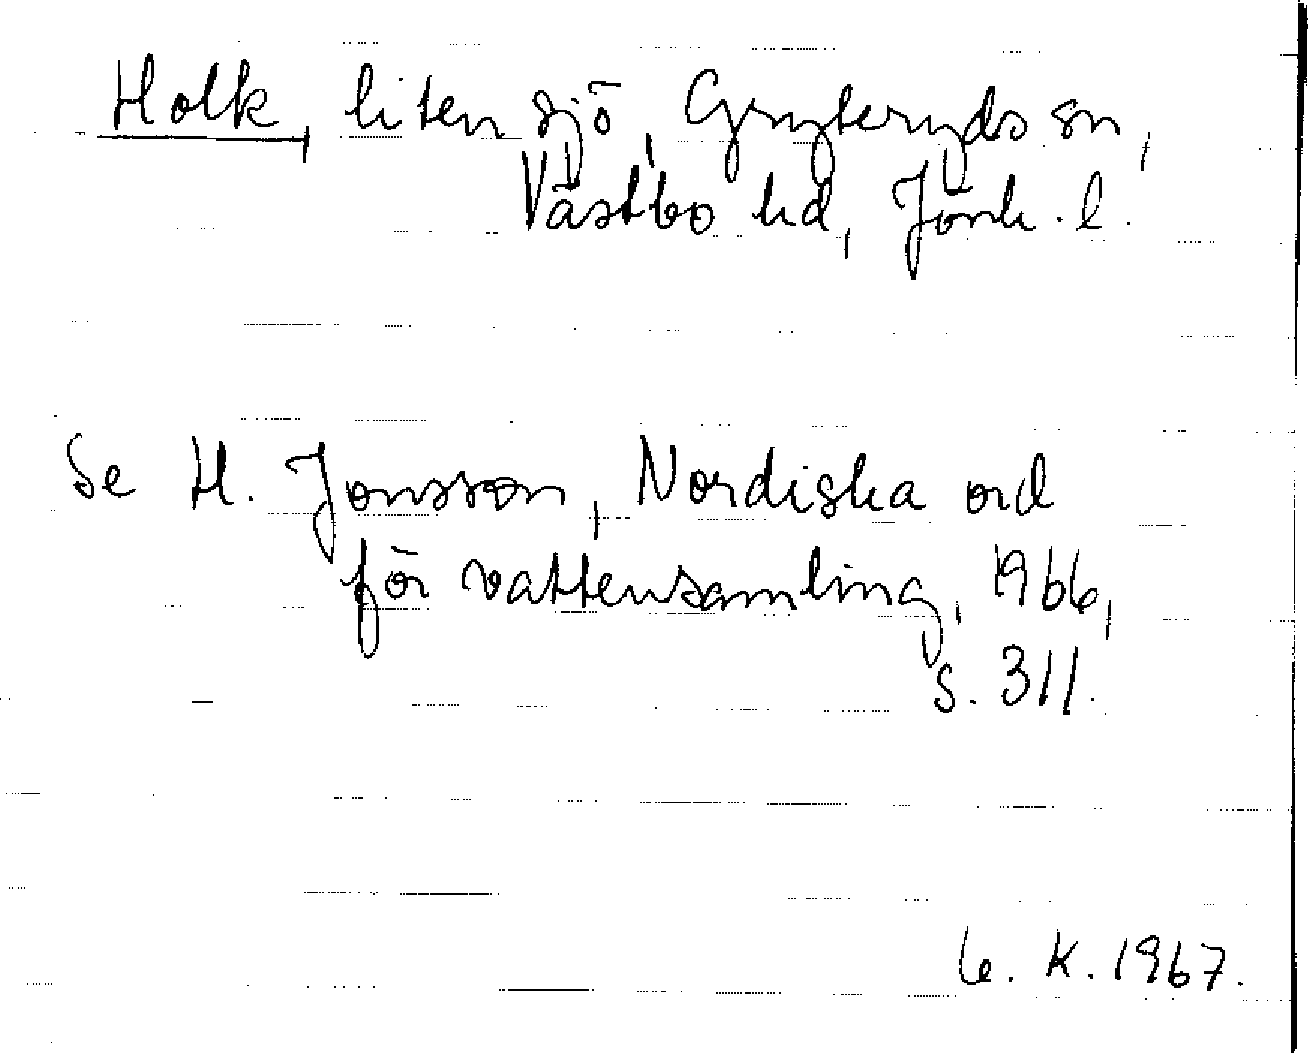 Holk, liten sjö, Gryteryds sn,
Västbo hd, Jönk. l.
Se H. Jonsson, Nordiska ord
för vattensamling, 1966,
s. 311.
K. 1967.